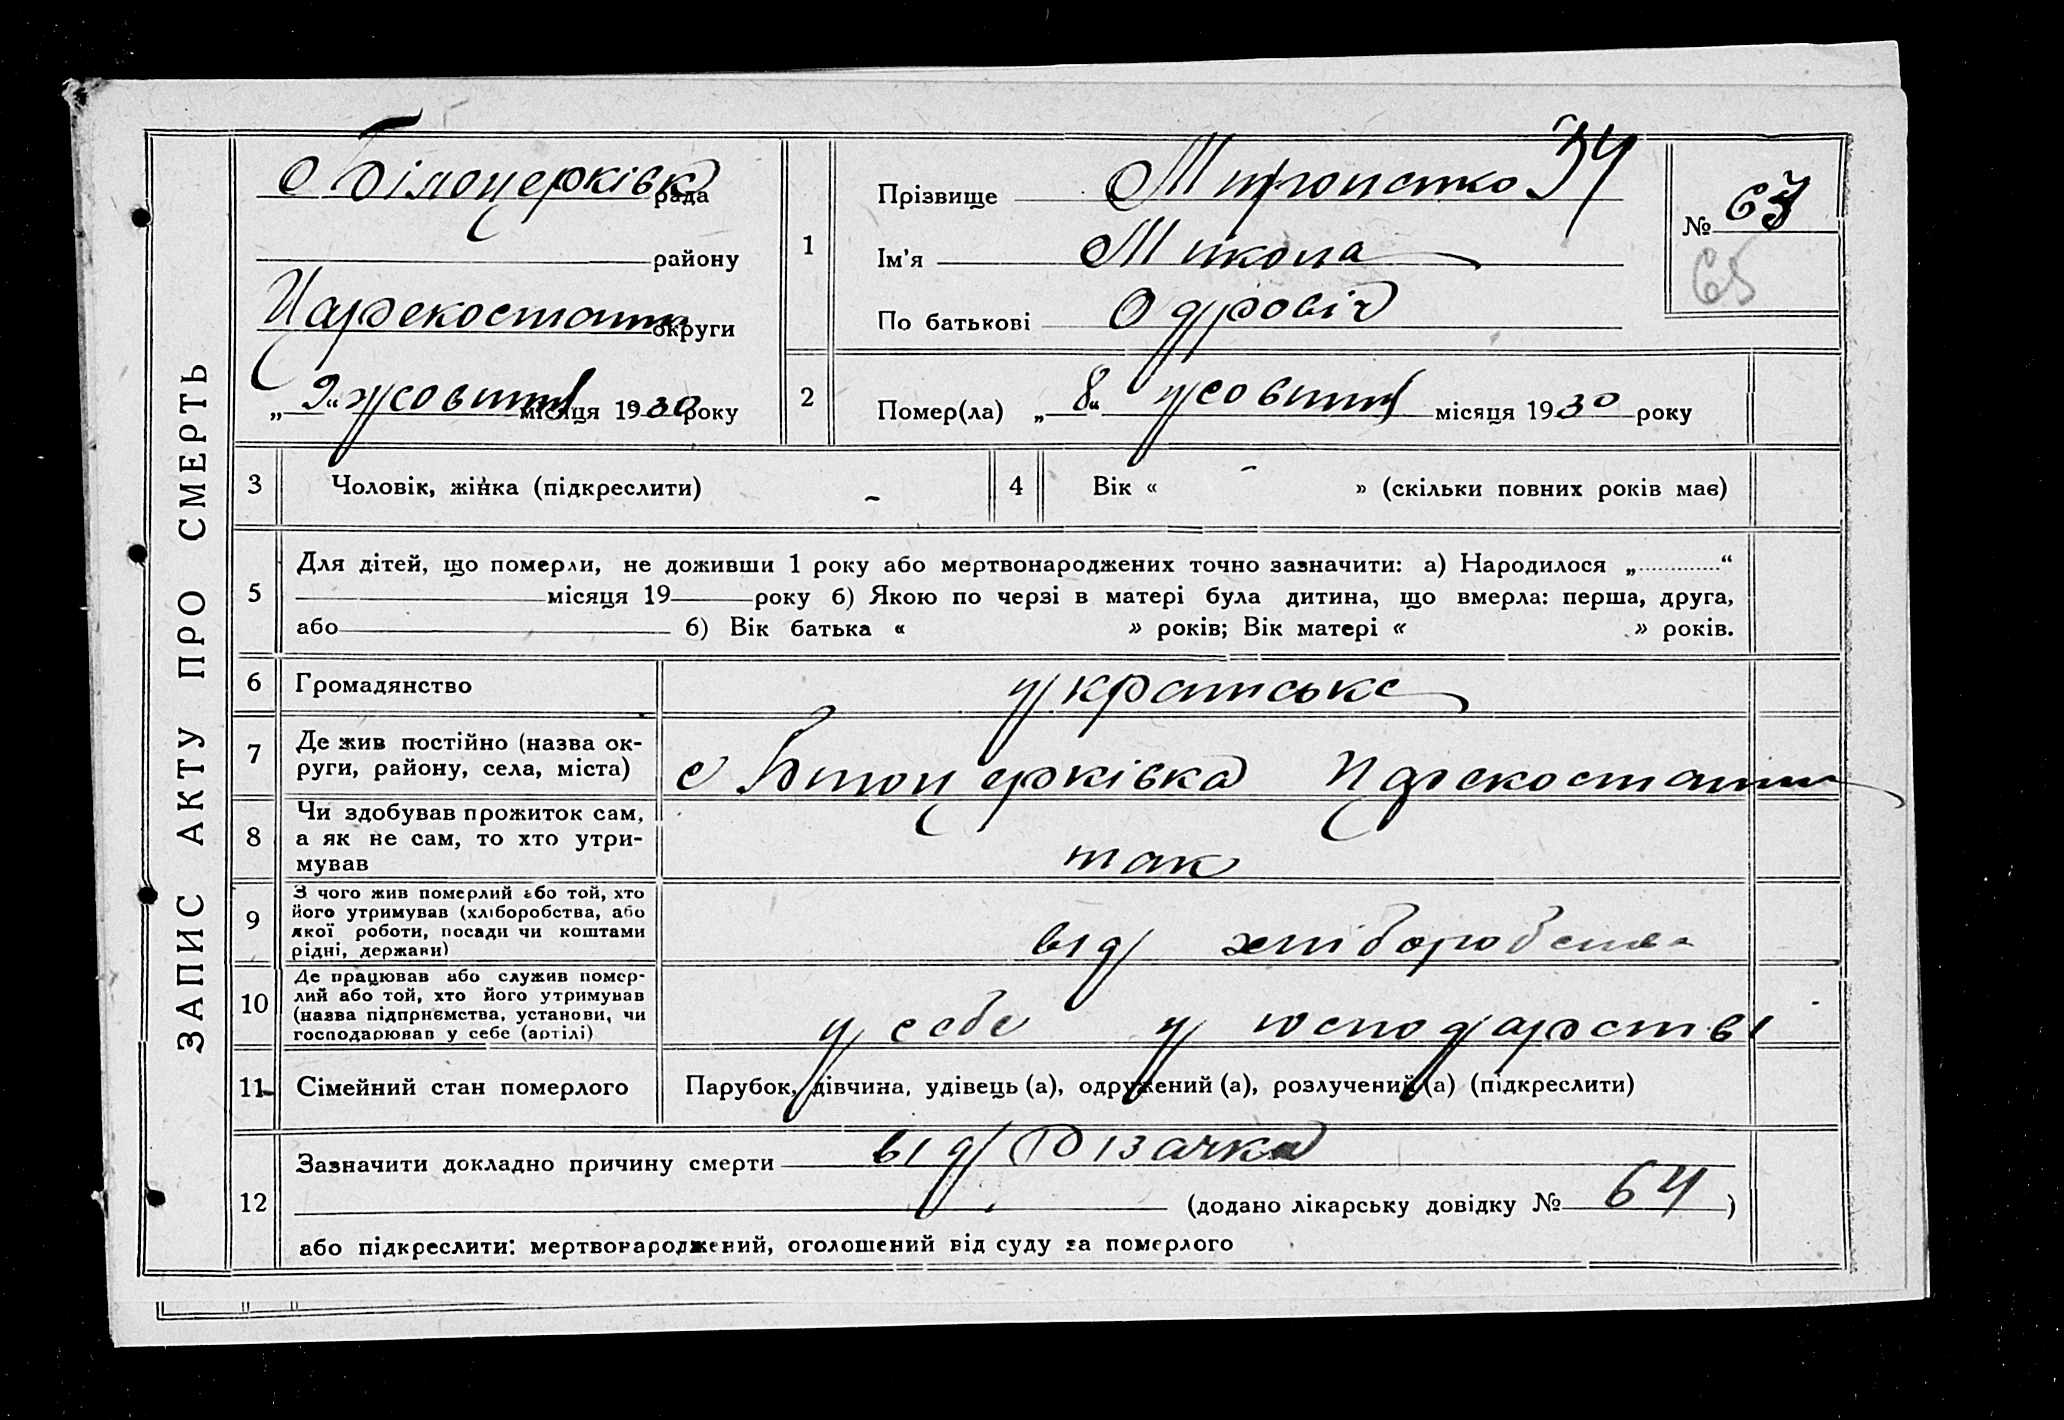 ЗАПИС АКТУ ПРО СМЕРТЬ
с Білоцерківка рада
району
округи
„ 9 “ жовтня місяця 1930 року
1
Прізвище
34
Ім'я Микола
По батькові
№ 63
65
2
Помер(ла) „ 8 “ жовтня місяця 1930 року
3
Чоловік, жінка (підкреслити) -
4
Вік « - » (скільки повних років має)
5
Для дітей, що померли, не доживши 1 року або мертвонароджених точно зазначити: а) Народилося „ “
місяця 19 року б) Якою по черзі в матері була дитина, що вмерла: перша, друга,
або б) Вік батька « » років; Вік матері « » років.
6
Громадянство
українське
7
Де жив постійно (назва ок-
руги, району, села, міста)
с Білоцерківка
8
Чи здобував прожиток сам,
а як не сам, то хто утри-
мував
так
9
З чого жив померлий або той, хто
його утримував (хліборобства, або
якої роботи, посади чи коштами
рідні, держави)
від хліборобства
10
Де працював або служив помер-
лий або той, хто його утримував
(назва підприємства, установи, чи
господарював у себе (артілі)
у себе у господарстві
11
Сімейний стан померлого
Парубок, дівчина, удівець (а), одружений (а), розлучений (а) (підкреслити)
12
Зазначити докладно причину смерти від різачка
(додано лікарську довідку № 64 )
або підкреслити: мертвонароджений, оголошений від суду за померлого